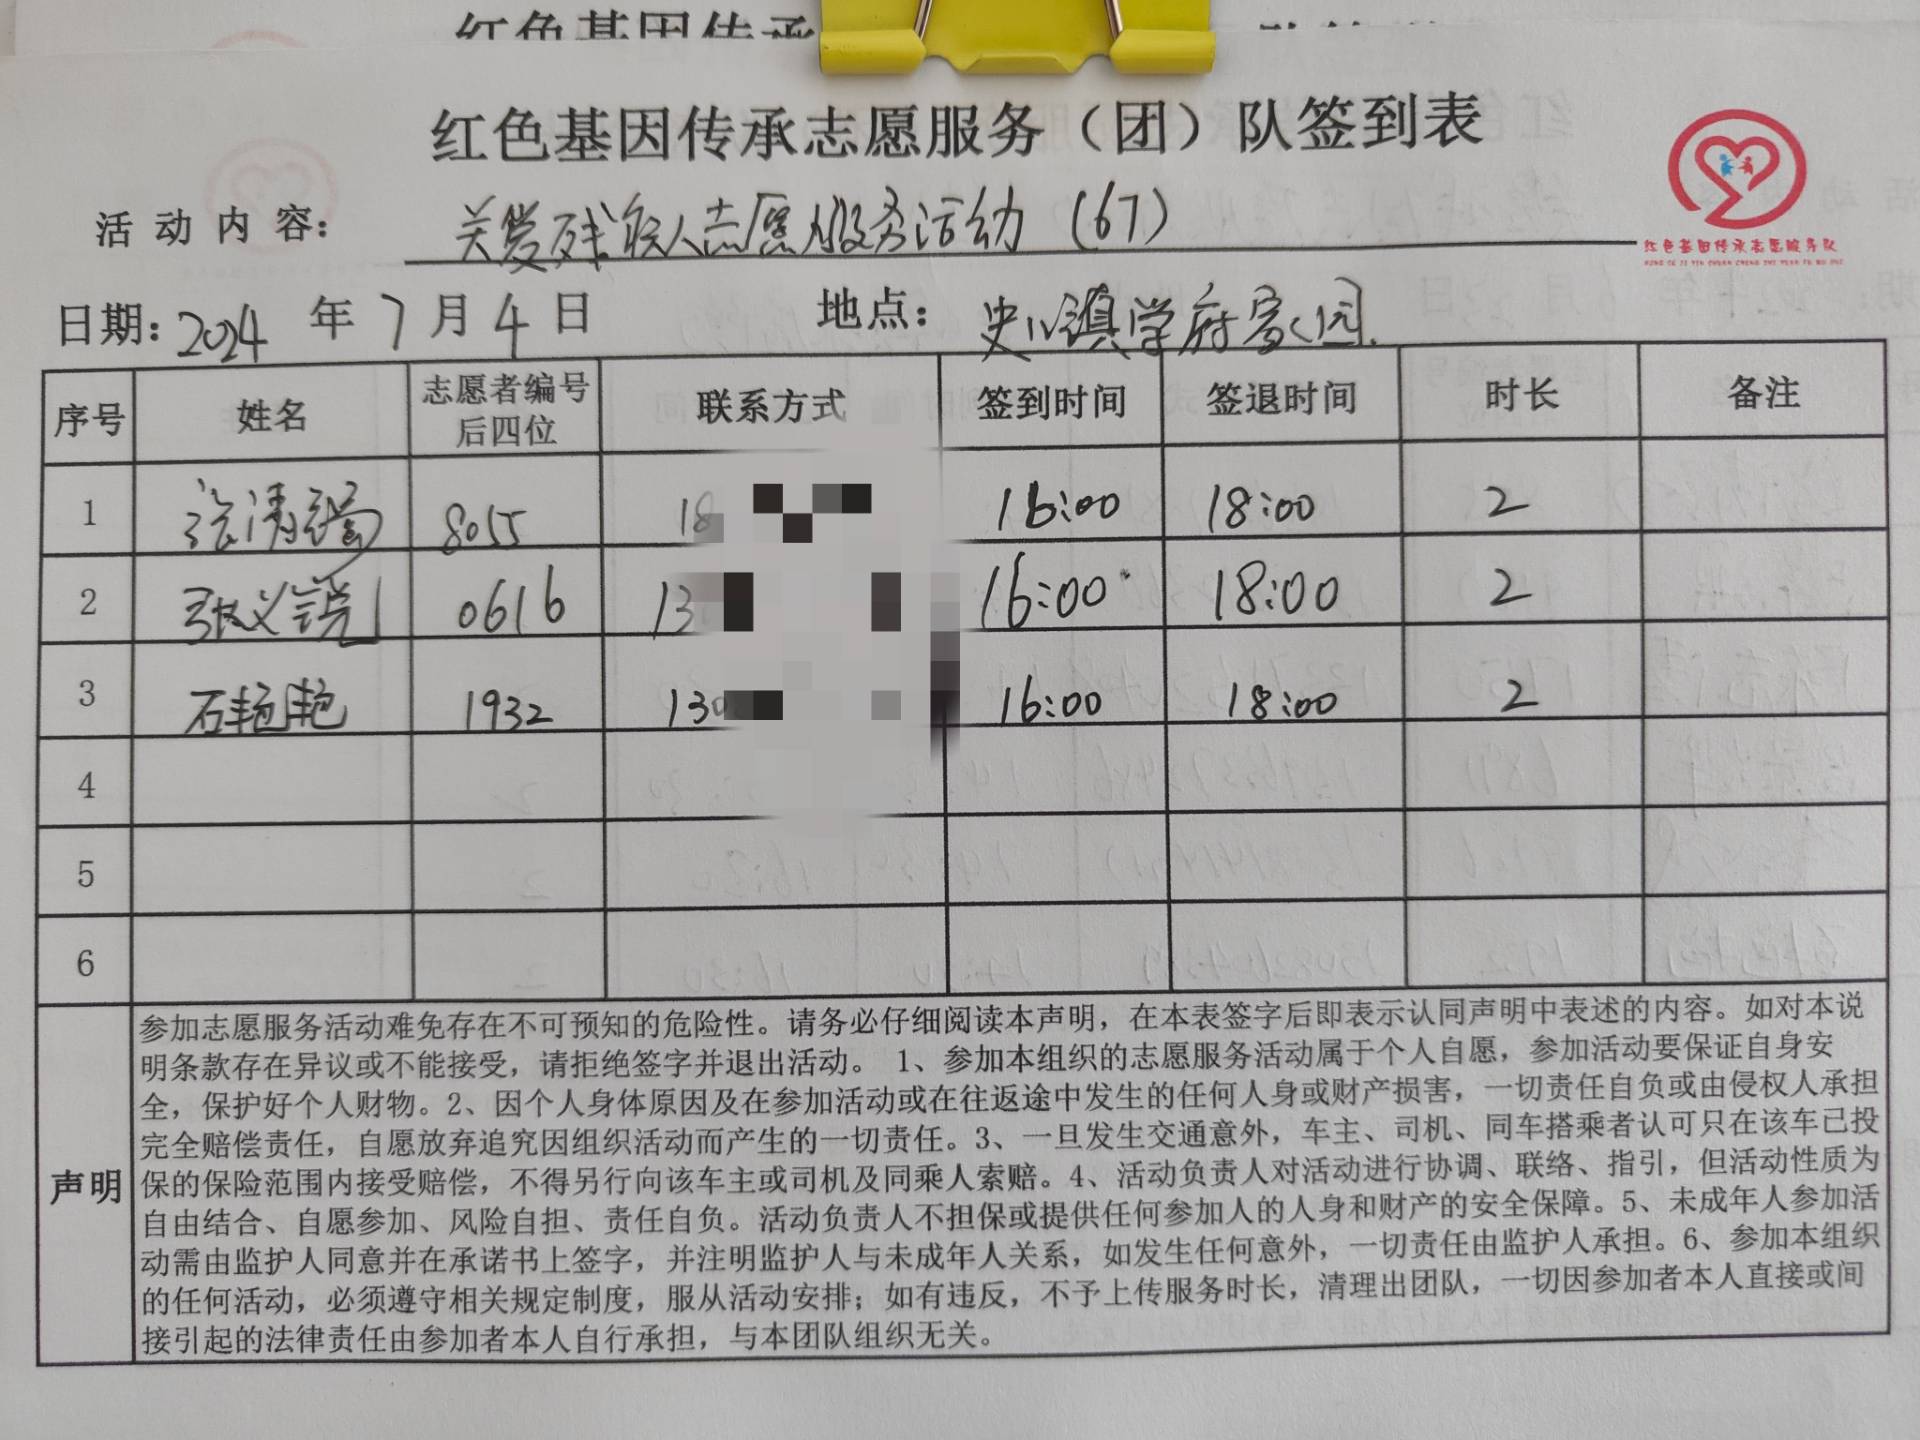 红色基因传承
红色基因传承志愿服务（团）队签到表
红色基因传承志愿服务队
HONG SE JI YIN CHUAN CHENG ZHI YUAN FU WU DUI
活动内容： 关爱残疾人志愿服务活动（67）
日期：2024年7月4日 地点：史川镇学府家园
序号 姓名 志愿者编号后四位 联系方式 签到时间 签退时间 时长 备注
1 8055 18 16:00 18:00 2
2 张义锐 0616 13 16:00 18:00 2
3 石艳艳 1932 130 16:00 18:00 2
4
5
6
声明
参加志愿服务活动难免存在不可预知的危险性。请务必仔细阅读本声明，在本表签字后即表示认同声明中表述的内容。如对本说
明条款存在异议或不能接受，请拒绝签字并退出活动。 1、参加本组织的志愿服务活动属于个人自愿，参加活动要保证自身安
全，保护好个人财物。2、因个人身体原因及在参加活动或在往返途中发生的任何人身或财产损害，一切责任自负或由侵权人承担
完全赔偿责任，自愿放弃追究因组织活动而产生的一切责任。3、一旦发生交通意外，车主、司机、同车搭乘者认可只在该车已投
保的保险范围内接受赔偿，不得另行向该车主或司机及同乘人索赔。4、活动负责人对活动进行协调、联络、指引，但活动性质为
自由结合、自愿参加、风险自担、责任自负。活动负责人不担保或提供任何参加人的人身和财产的安全保障。5、未成年人参加活
动需由监护人同意并在承诺书上签字，并注明监护人与未成年人关系，如发生任何意外，一切责任由监护人承担。6、参加本组织
的任何活动，必须遵守相关规定制度，服从活动安排；如有违反，不予上传服务时长，清理出团队，一切因参加者本人直接或间
接引起的法律责任由参加者本人自行承担，与本团队组织无关。